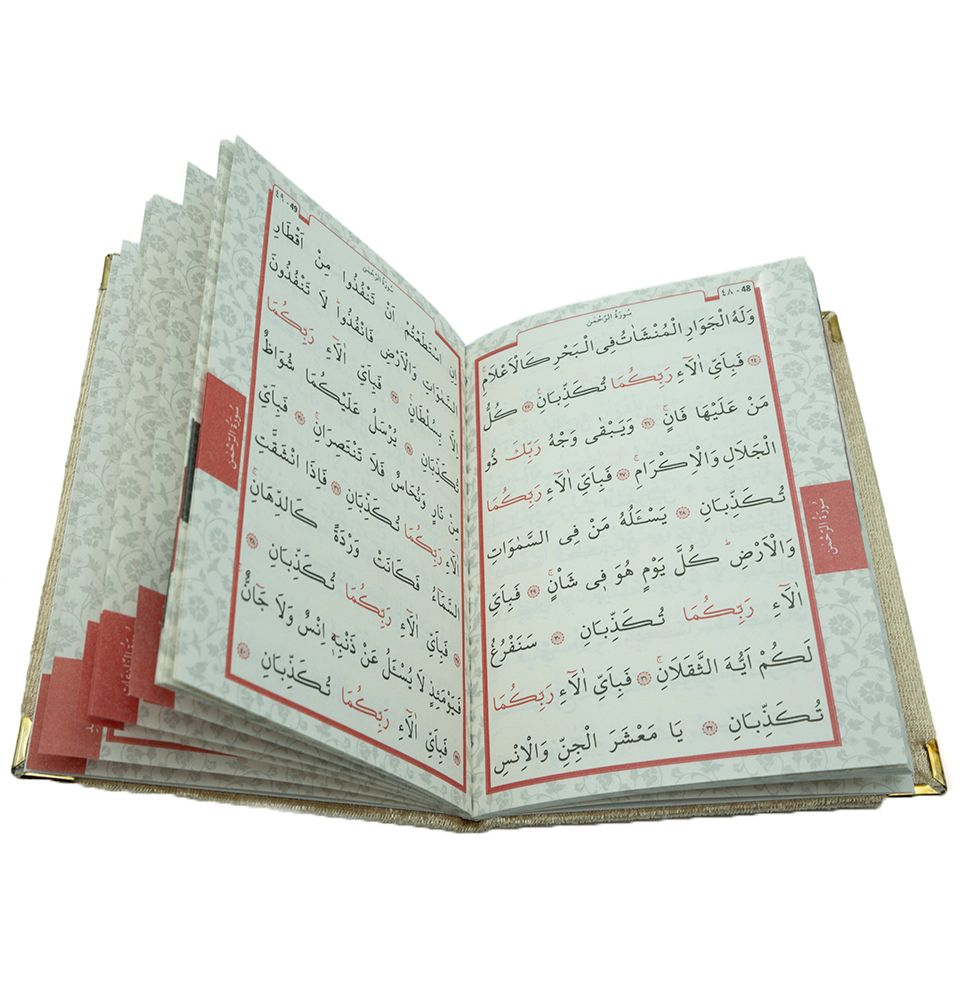 ٤٨ - 48
سُورَةُ الرَّحْمٰنِ
وَلَهُ الْجَوَارِ الْمُنْشَاٰتُ فِى الْبَحْرِ كَالْاَعْلَامِۚ
﴿٢٤﴾ فَبِاَىِّ اٰلَٓاءِ رَبِّكُمَا تُكَذِّبَانِ۟ ﴿٢٥﴾ كُلُّ
مَنْ عَلَيْهَا فَانٍۚ ﴿٢٦﴾ وَيَبْقٰى وَجْهُ رَبِّكَ ذُو
الْجَلَالِ وَالْاِكْرَامِۚ ﴿٢٧﴾ فَبِاَىِّ اٰلَٓاءِ رَبِّكُمَا
تُكَذِّبَانِ ﴿٢٨﴾ يَسْـَٔلُهُ مَنْ فِى السَّمٰوَاتِ
وَالْاَرْضِۜ كُلَّ يَوْمٍ هُوَ فٖى شَاْنٍۚ ﴿٢٩﴾ فَبِاَىِّ
اٰلَٓاءِ رَبِّكُمَا تُكَذِّبَانِ ﴿٣٠﴾ سَنَفْرُغُ
لَكُمْ اَيُّهَ الثَّقَلَانِۚ ﴿٣١﴾ فَبِاَىِّ اٰلَٓاءِ رَبِّكُمَا
تُكَذِّبَانِ ﴿٣٢﴾ يَا مَعْشَرَ الْجِنِّ وَالْاِنْسِ
سُورَةُ الرَّحْمٰنِ
٤٩ - 49
سُورَةُ الرَّحْمٰنِ
اِنِ اسْتَطَعْتُمْ اَنْ تَنْفُذُوا مِنْ اَقْطَارِ
السَّمٰوَاتِ وَالْاَرْضِ فَانْفُذُواۜ لَا تَنْفُذُونَ
اِلَّا بِسُلْطَانٍۚ ﴿٣٣﴾ فَبِاَىِّ اٰلَٓاءِ رَبِّكُمَا
تُكَذِّبَانِ ﴿٣٤﴾ يُرْسَلُ عَلَيْكُمَا شُوَاظٌ
مِنْ نَارٍ وَنُحَاسٌ فَلَا تَنْتَصِرَانِۚ ﴿٣٥﴾ فَبِاَىِّ
اٰلَٓاءِ رَبِّكُمَا تُكَذِّبَانِ ﴿٣٦﴾ فَاِذَا انْشَقَّتِ
السَّمَٓاءُ فَكَانَتْ وَرْدَةً كَالدِّهَانِۚ
﴿٣٧﴾ فَبِاَىِّ اٰلَٓاءِ رَبِّكُمَا تُكَذِّبَانِ ﴿٣٨﴾
فَيَوْمَئِذٍ لَا يُسْـَٔلُ عَنْ ذَنْبِهٖٓ اِنْسٌ وَلَا جَٓانٌّۚ
﴿٣٩﴾ فَبِاَىِّ اٰلَٓاءِ رَبِّكُمَا تُكَذِّبَانِ ﴿٤٠﴾
سُورَةُ الرَّحْمٰنِ